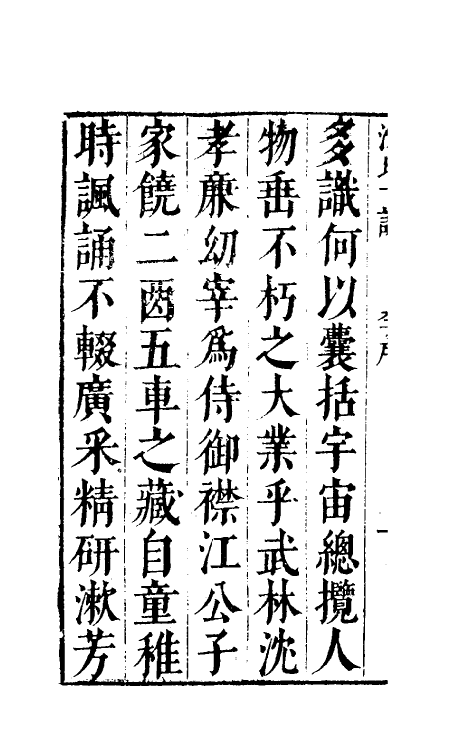 多識何以囊括宇宙總攬人
物垂不朽之大業乎武林沈
孝廉幼宰為侍御襟江公子
家饒二酉五車之藏自童稚
時諷誦不輟廣采精研漱芳